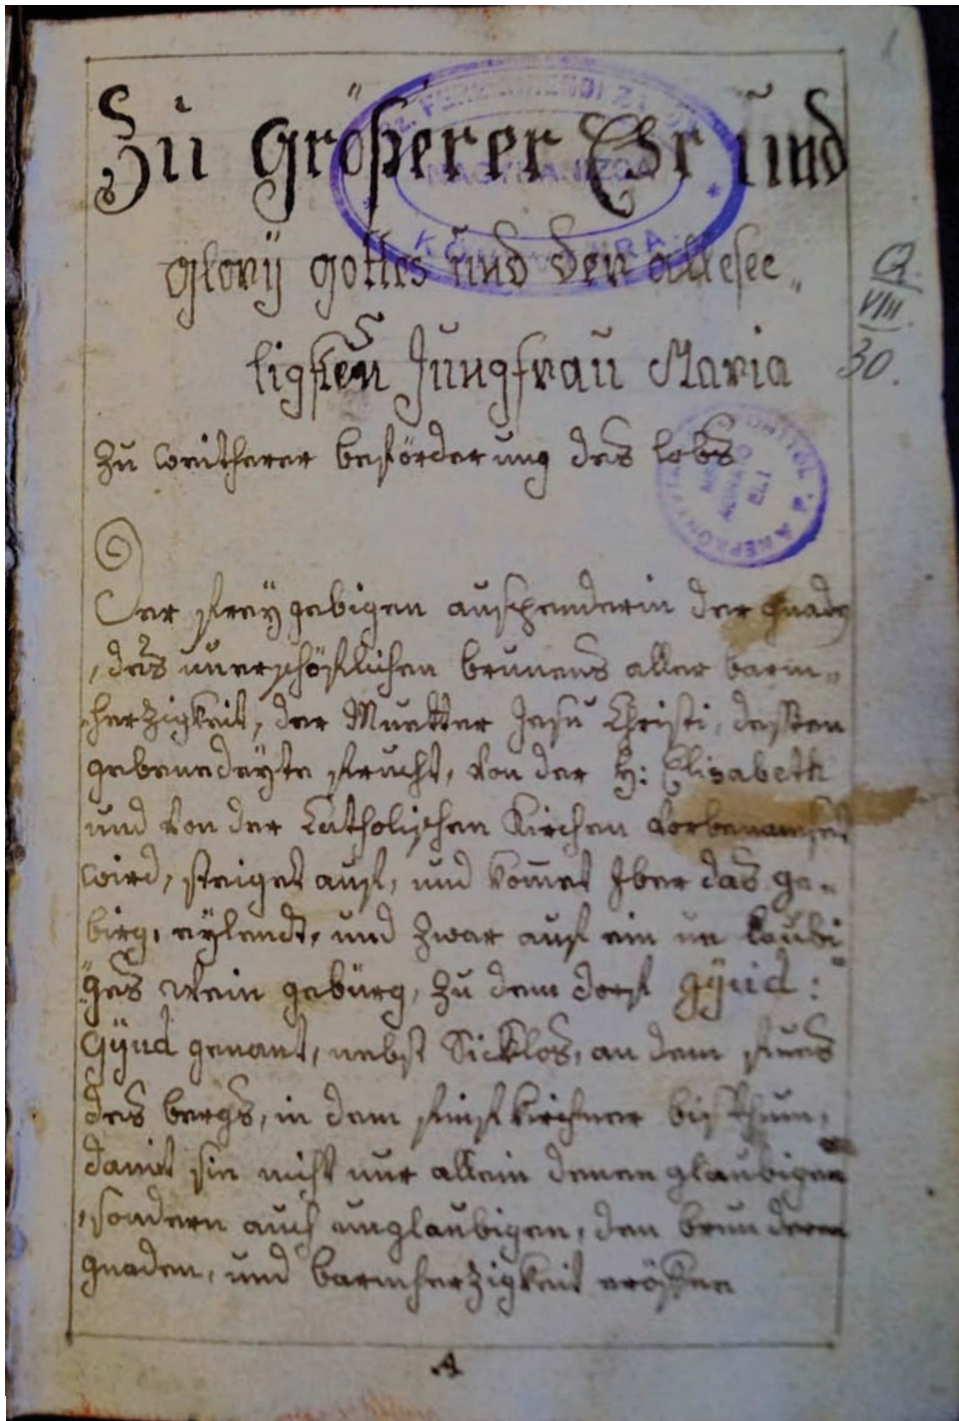 1
Zu größerer Ehr und
Glorÿ gottes und der alleseeˏˏ
ligsten Jungfrau Maria
Q.
VIII.
30.
KÖNYVTÁRA
Zu weitherer beförderung des lobs
Der freÿgebigen ausspenderin der gnaden
, des unerschöpflichen brunens aller barmˏˏ
herzigkeit, der Muetter Jesu Christi, dessen
gebenedeÿte frucht, von der H: Elisabeth
und von der Catholischen Kirchen vorbenamset
wird, steiget auf, und komet Iber das geˏˏ
birg, eylendt, und zwar auf ein un laubi
ges Wein gebürg, zu dem dorf gÿüd:
Gÿud genant, nebst Sicklos, an dem fues
des bergs, in dem finfkirchner bisthum,
damit sie nicht nur allein denen glaubigen
, sondern auch unglaubigen, den brun deren
gnaden, und barmherzigkeit eröffne
A